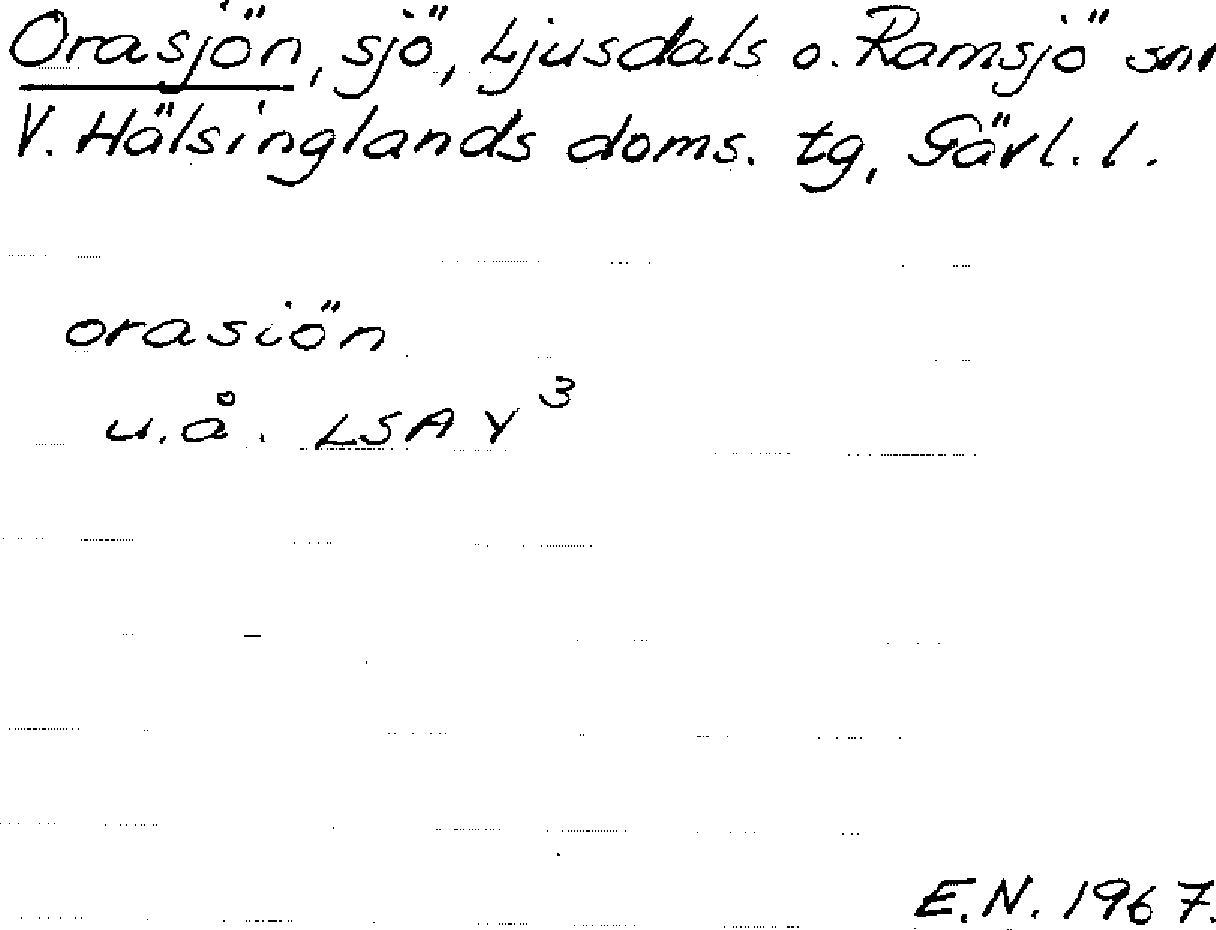 Orasjön, sjö, Ljusdals o. Ramsjö snr
V. Hälsinglands doms. tg, Gävl. l.
orasiön
u.å. LSA Y³
E.N. 1967.